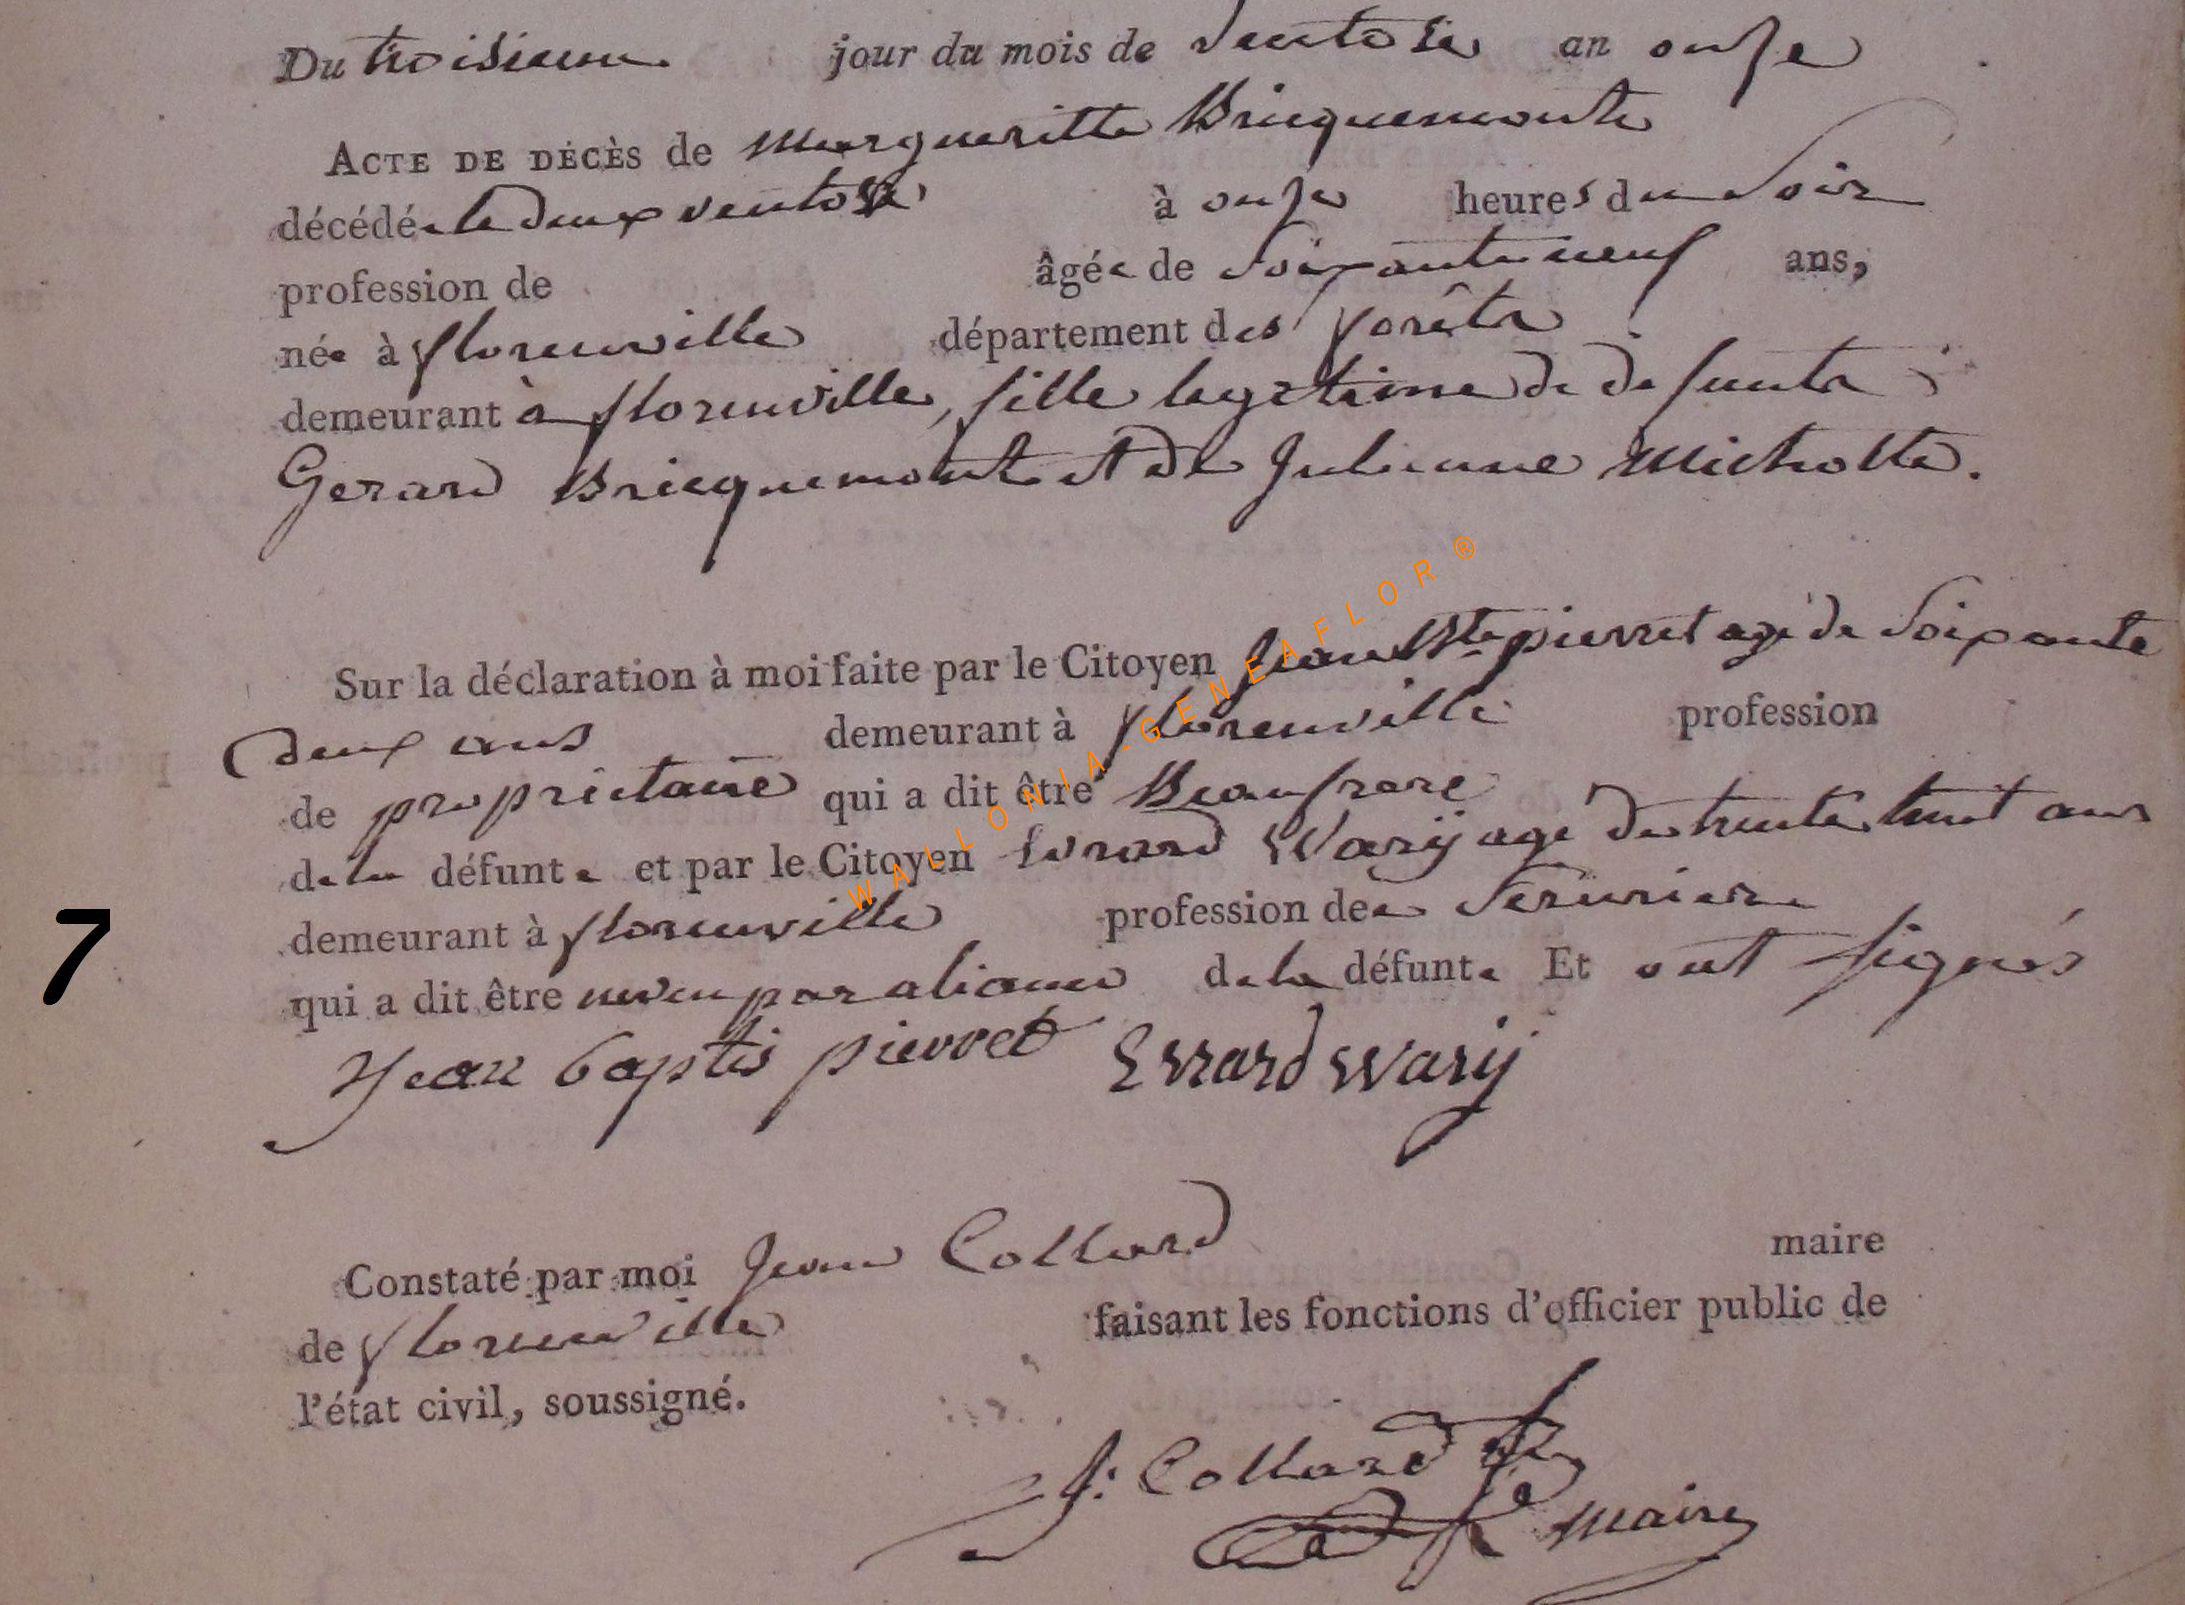 Du troisieme jour du mois de ventose an onse
ACTE DE DÉCÈS de Margueritte Bricquemonte
décédée le deux ventose à onse heures du soir
profession de âgée de soixante neuf ans,
née à florenville département des forêts
demeurant à florenville, fille legetime de defunts
Gerard Bricquemont et de Julienne Michotte.
Sur la déclaration à moi faite par le Citoyen Jean Bte pierret agé de soixante
deux ans demeurant à florenville profession
de proprietaire qui a dit être Beaufrere
de la défunte et par le Citoyen Evrard Warij agé de trente huit ans
demeurant à florenville profession de serurier
qui a dit être neveu par aliance de la défunte Et ont signés
Jean baptis pierret Evrard Warij
7
Constaté par moi Jean Collard maire
de florenville faisant les fonctions d'officier public de
l'état civil, soussigné.
J: Collard
maire
WALLONIA-GENEAFLOR®